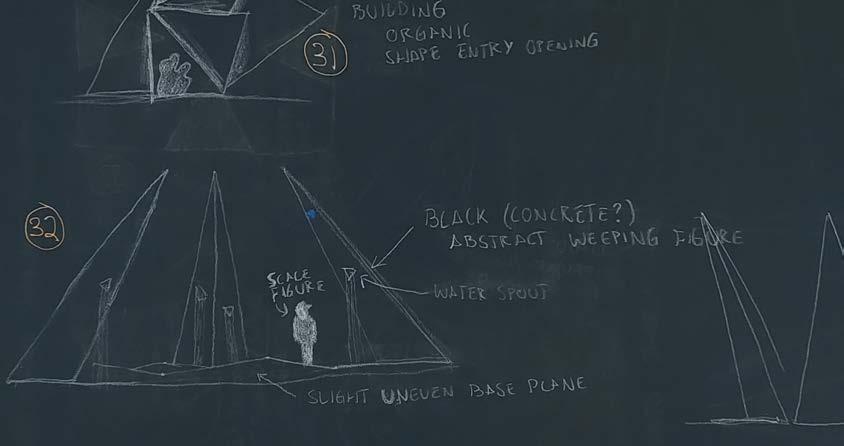 BUILDING
ORGANIC
SHAPE ENTRY OPENING
31
32
BLACK (CONCRETE?)
ABSTRACT WEEPING FIGURE
SCALE
FIGURE
WATER SPOUT
SLIGHT UNEVEN BASE PLANE